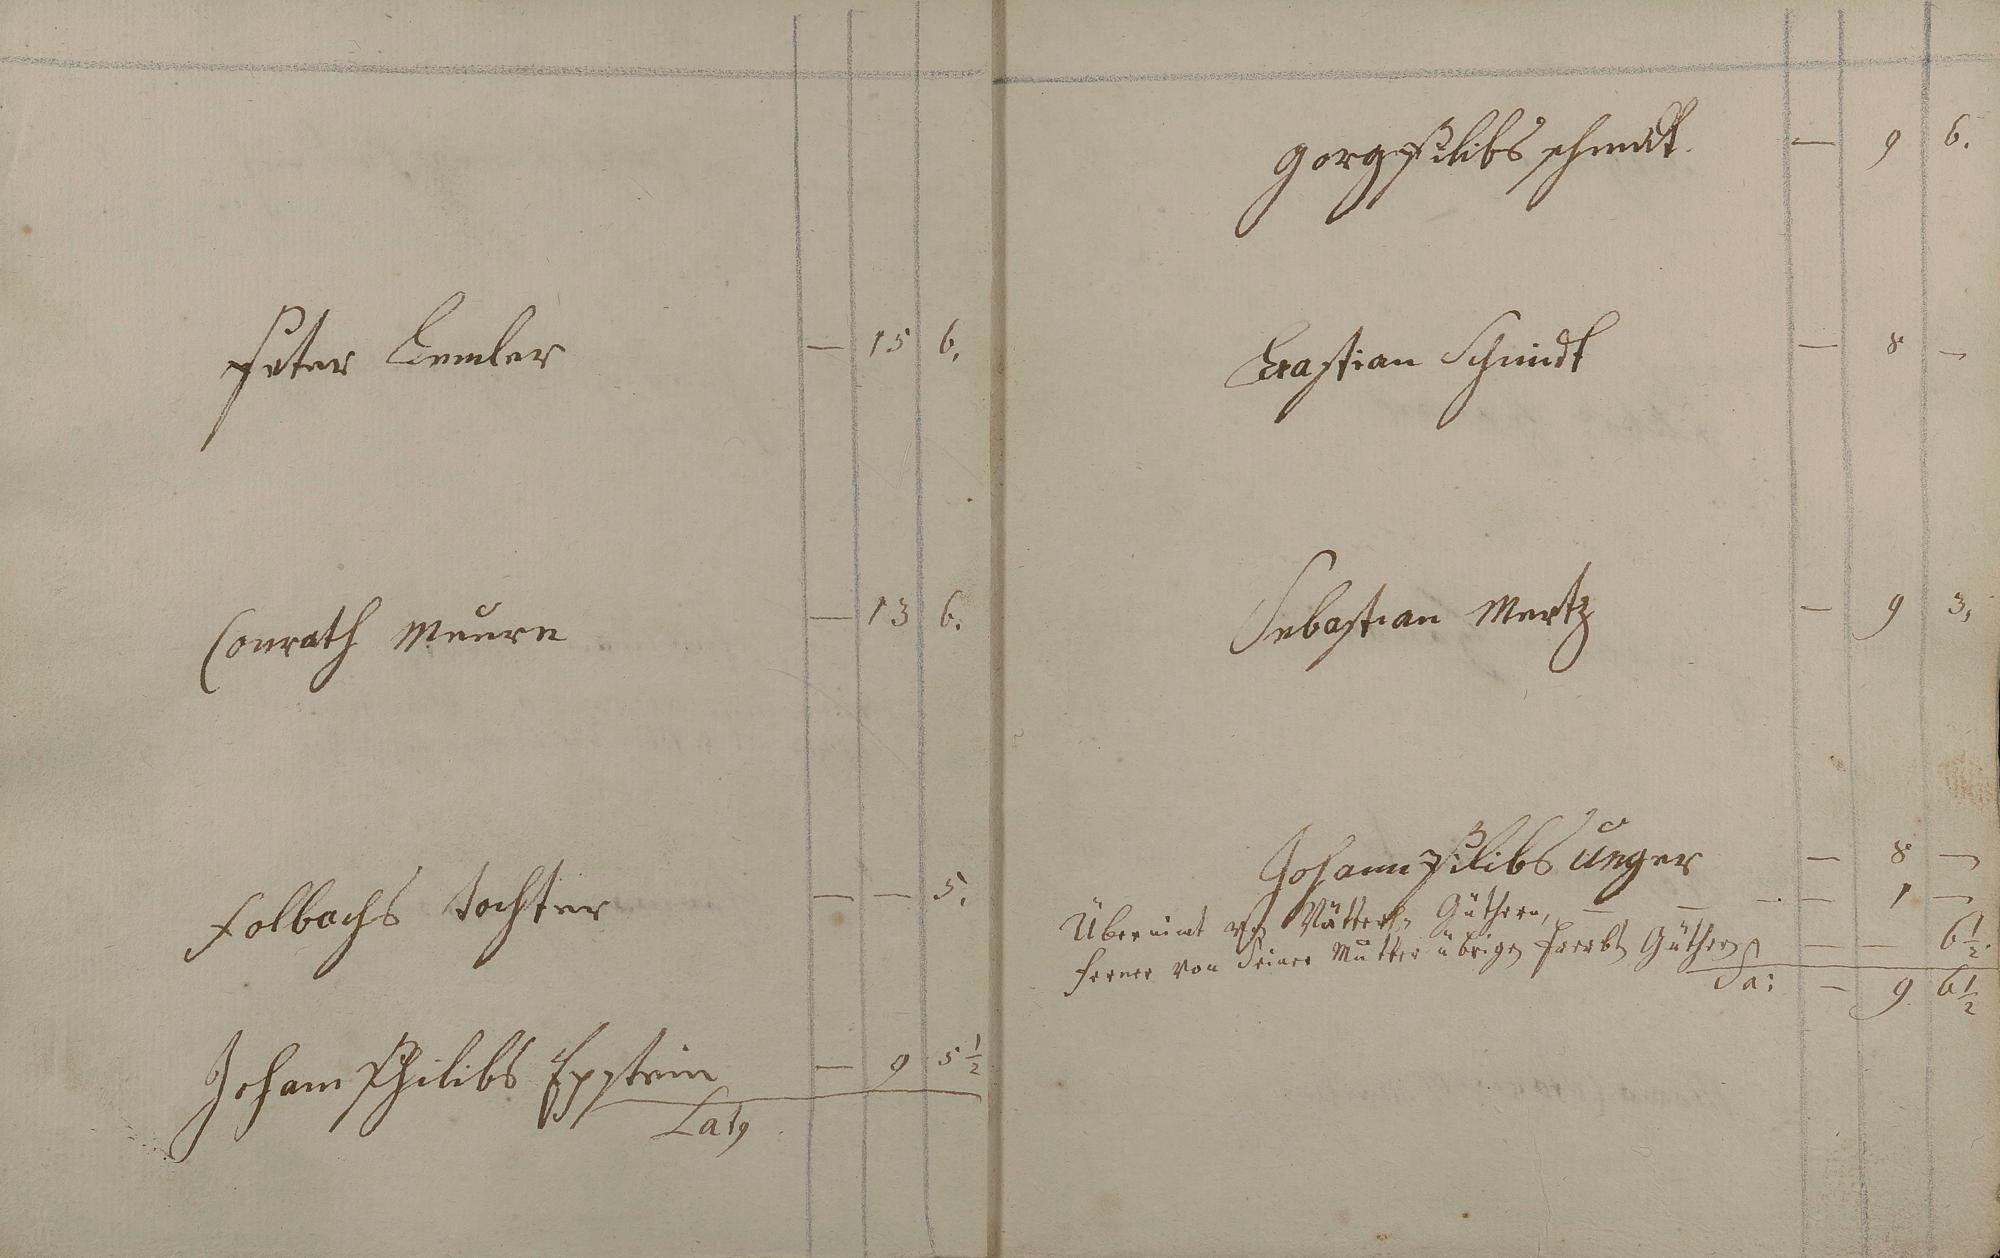 Peter Lemler — 15 6.
Conrath Meüren — 13 6.
Folbachs tochter — — 5.
Joham Philibs Epstein — 9 5 1/2
Lat9
gorg Filibs schmidt. — 9 6.
Bastian Schmidt — 8 —
Sebastian Mertz — 9 3.
Johann Filibs Unger — 8 —
Übernimt Vätterln Güthern, — — — 1 —
ferner von Seiner Mutter übrigen Güthern — — 6 1/2.
Sa: — 9. 6 1/2